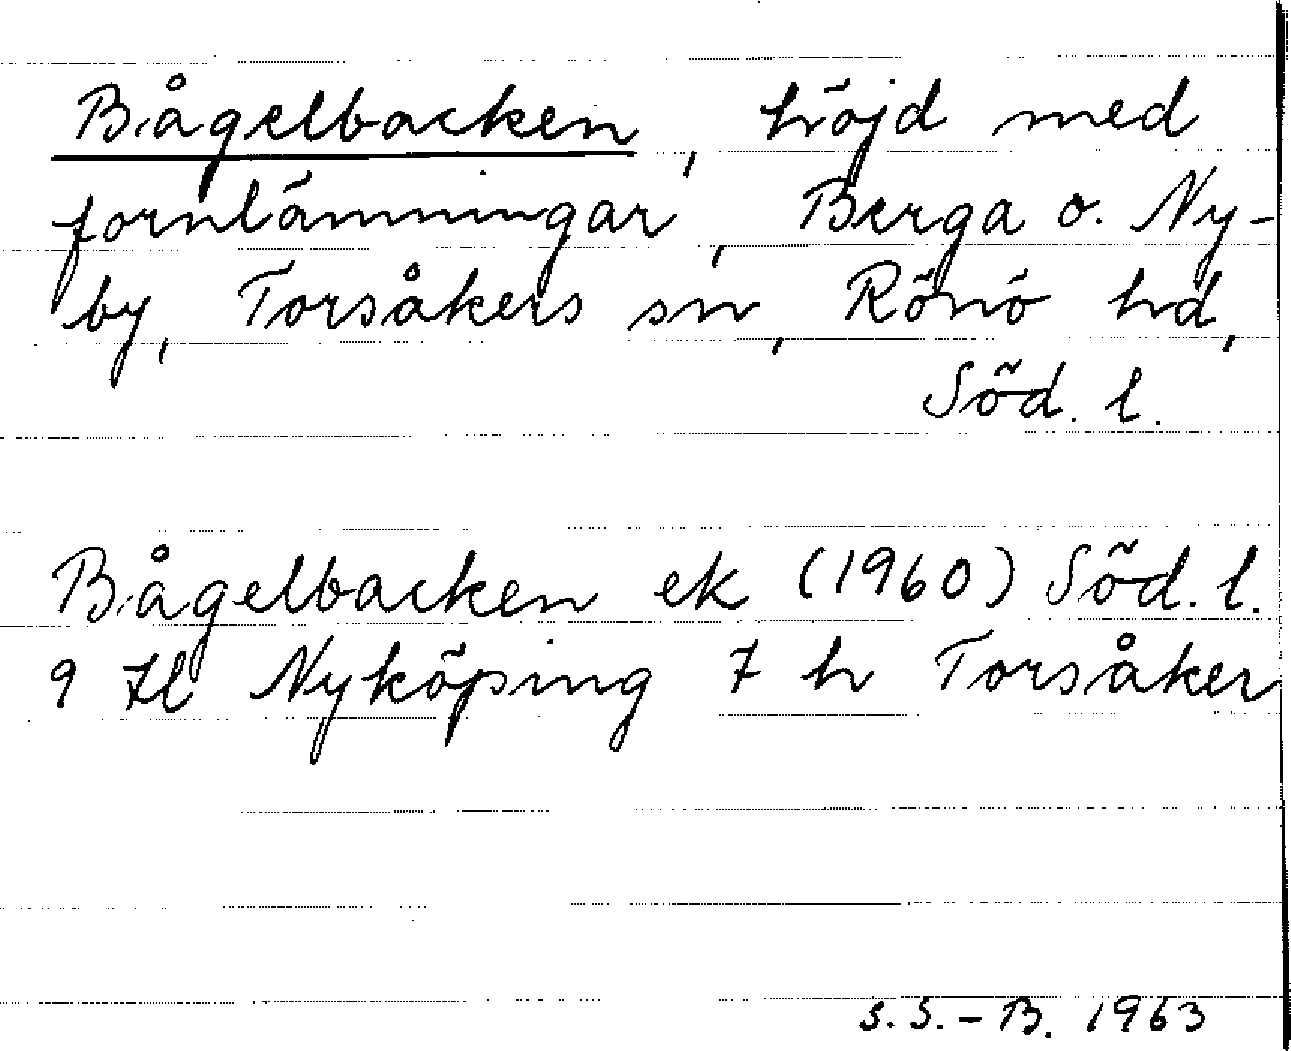 Bågelbacken, höjd med
fornlämningar, Berga o. Ny-
by, Torsåkers sn, Rönö hd,
Söd. l.
Bågelbacken ek (1960) Söd. l.
9 Il Nyköping 7 h Torsåker
S.S.-B. 1963